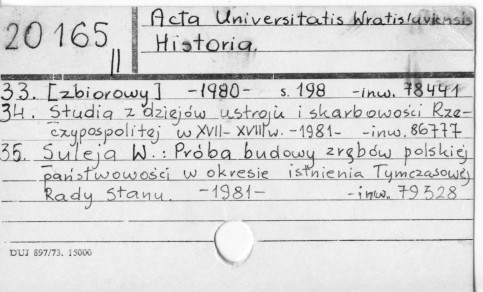 20165 II
Acta Universitatis Wratislaviensis
Historia.
33. [zbiorowy] -1980- s. 198 -inw. 78441
34. Studia z dziejów ustroju i skarbowości Rze-
czypospolitej w XVII-XVIII w. -1981- -inw. 86777
35. Suleja W.: Próba budowy zrębów polskiej
państwowości w okresie istnienia Tymczasowej
Rady Stanu. -1981- -inw. 79328
DUJ 897/73. 15000